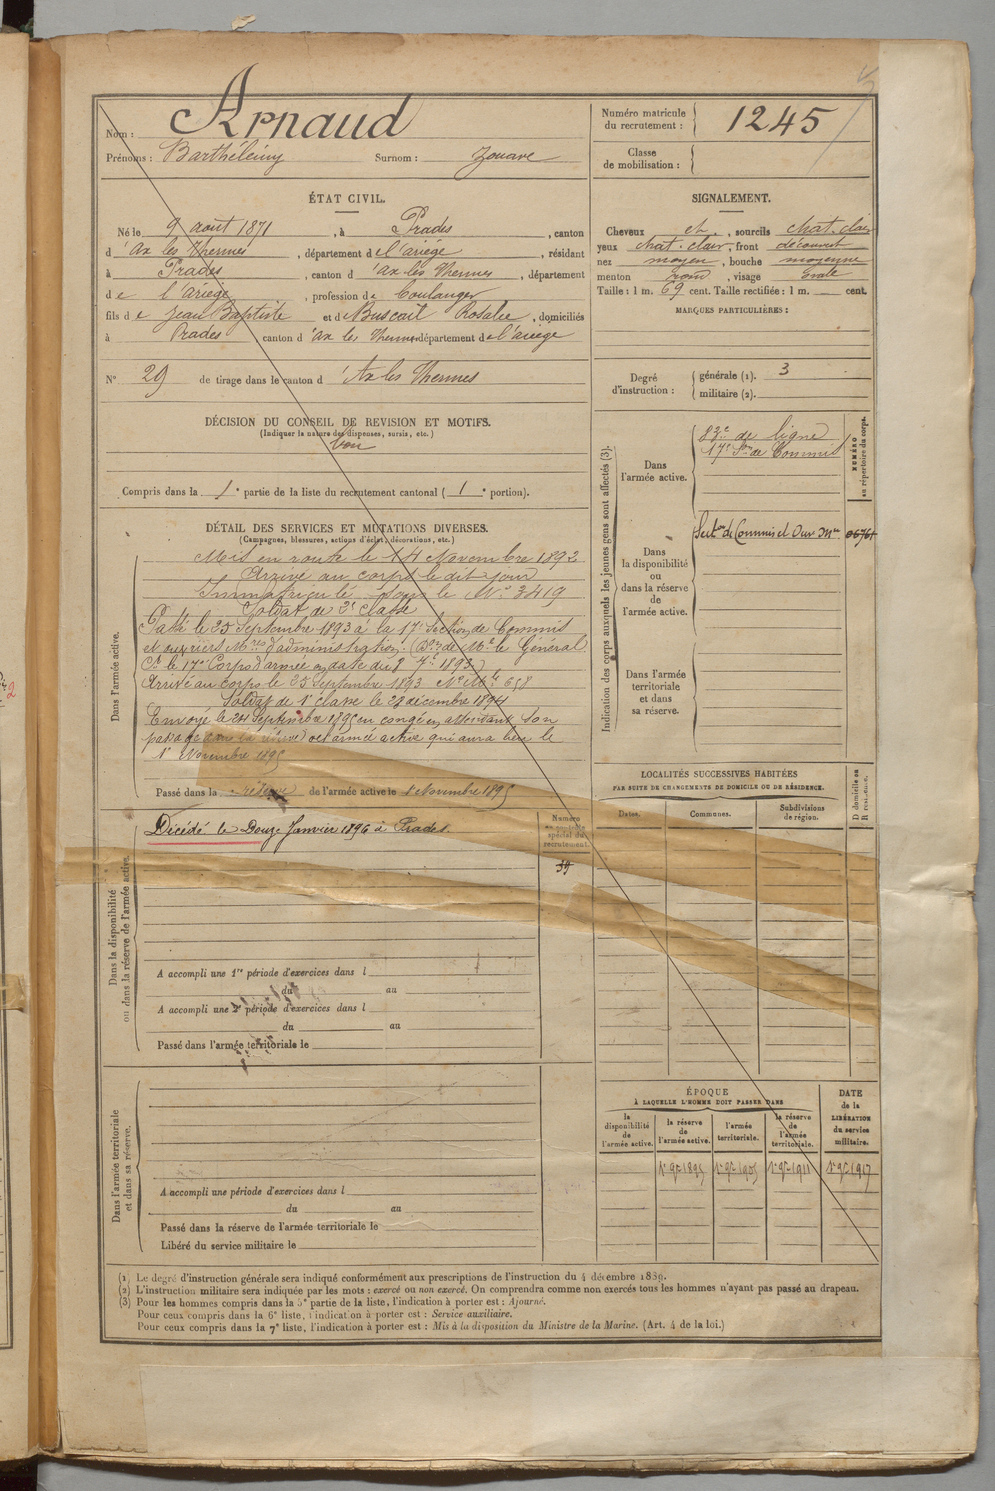 Nom : Arnaud
Prénoms : Barthélemy Surnom : Zouave
Numéro matricule du recrutement : 1245
Classe de mobilisation :
ÉTAT CIVIL.
Né le 9 août 1871, à Prades, canton
d'ax les Thermes, département de l'ariège, résidant
à Prades, canton d'ax-les Thermes, département
de l'ariège, profession de
fils de Jean Baptiste et de Rosalie, domiciliés
à Prades canton d'ax les Thermes département de l'ariège
N° 29 de tirage dans le canton d'Ax les Thermes
SIGNALEMENT.
Cheveux ch., sourcils chat. clair
yeux chat. clair, front découvert
nez moyen, bouche moyenne
menton rond, visage ovale
Taille : 1 m. 69 cent. Taille rectifiée : 1 m. cent.
MARQUES PARTICULIÈRES :
Degré d'instruction : générale (1). 3
militaire (2).
DÉCISION DU CONSEIL DE REVISION ET MOTIFS.
(Indiquer la nature des dispenses, sursis, etc.)
Bon
Compris dans la 1e partie de la liste du recrutement cantonal ( 1e portion).
DÉTAIL DES SERVICES ET MUTATIONS DIVERSES.
(Campagnes, blessures, actions d'éclat, décorations, etc.)
Dans l'armée active.
Mis en route le 14 Novembre 1892
Arrivé au corps le dit jour
Immatriculé sous le N° 3419
Soldat de 2e classe
Passé le 25 Septembre 1893 à la 17e Section de Commis
et ouvriers Mres d'administration. (Don de Mr le Général
Ct le 17e Corps d'armée en date du 8 7bre 1893)
Arrivé au corps le 25 Septembre 1893 N° Mle 658
Soldat de 1e classe le 28 décembre 1894
Envoyé le 24 Septembre 1895 en congé en attendant son
passage dans la réserve de l'armée active qui aura lieu le
1e Novembre 1895
Passé dans la réserve de l'armée active le 1 Novembre 1895
Indication des corps auxquels les jeunes gens sont affectés (3).
NUMÉRO au répertoire du corps.
Dans l'armée active.
83e de ligne
17e Son de Commis
Dans la disponibilité ou dans la réserve de l'armée active.
Secton de Commis et Ouv. Mres
Dans l'armée territoriale et dans sa réserve.
LOCALITÉS SUCCESSIVES HABITÉES
PAR SUITE DE CHANGEMENTS DE DOMICILE OU DE RÉSIDENCE.
Dates. Communes. Subdivisions de région. D domicile ou R résidence.
Dans la disponibilité ou dans la réserve de l'armée active.
Décédé le Douze Janvier 1896 à Prades.
Numéro au contrôle spécial du recrutement.
39
A accompli une 1re période d'exercices dans l
du au
A accompli une 2e période d'exercices dans l
du au
Passé dans l'armée territoriale le
Dans l'armée territoriale et dans sa réserve.
A accompli une période d'exercices dans l
du au
Passé dans la réserve de l'armée territoriale le
Libéré du service militaire le
ÉPOQUE
À LAQUELLE L'HOMME DOIT PASSER DANS
la disponibilité de l'armée active.
la réserve de l'armée active.
l'armée territoriale.
la réserve de l'armée territoriale.
DATE de la LIBÉRATION du service militaire.
1e 9bre 1895 1e 9bre 1905 1e 9bre 1911 1e 9bre 1917
(1) Le degré d'instruction générale sera indiqué conformément aux prescriptions de l'instruction du 4 décembre 1889.
(2) L'instruction militaire sera indiquée par les mots : exercé ou non exercé. On comprendra comme non exercés tous les hommes n'ayant pas passé au drapeau.
(3) Pour les hommes compris dans la 5e partie de la liste, l'indication à porter est : Ajourné.
Pour ceux compris dans la 6e liste, l'indication à porter est : Service auxiliaire.
Pour ceux compris dans la 7e liste, l'indication à porter est : Mis à la disposition du Ministre de la Marine. (Art. 4 de la loi.)